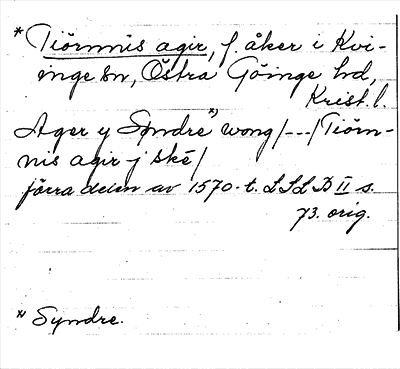 * Tiörnnis agir, f. åker i Kvi-
inge sn, Östra Göinge hd,
Krist. l.
Ager y Søndre*) wong/---/Tiörn-
nis agir j ské/
förra delen av 1570-t. LSLB II s.
73. orig.
*) Syndre.